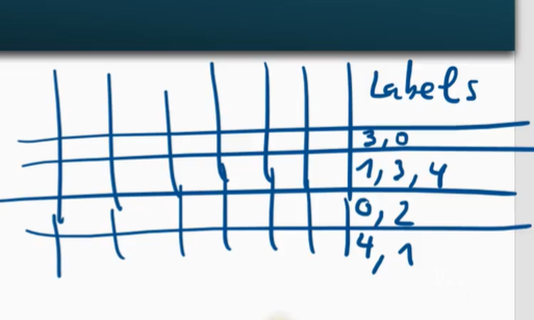 Labels
3,0
1,3,4
0,2
4,1